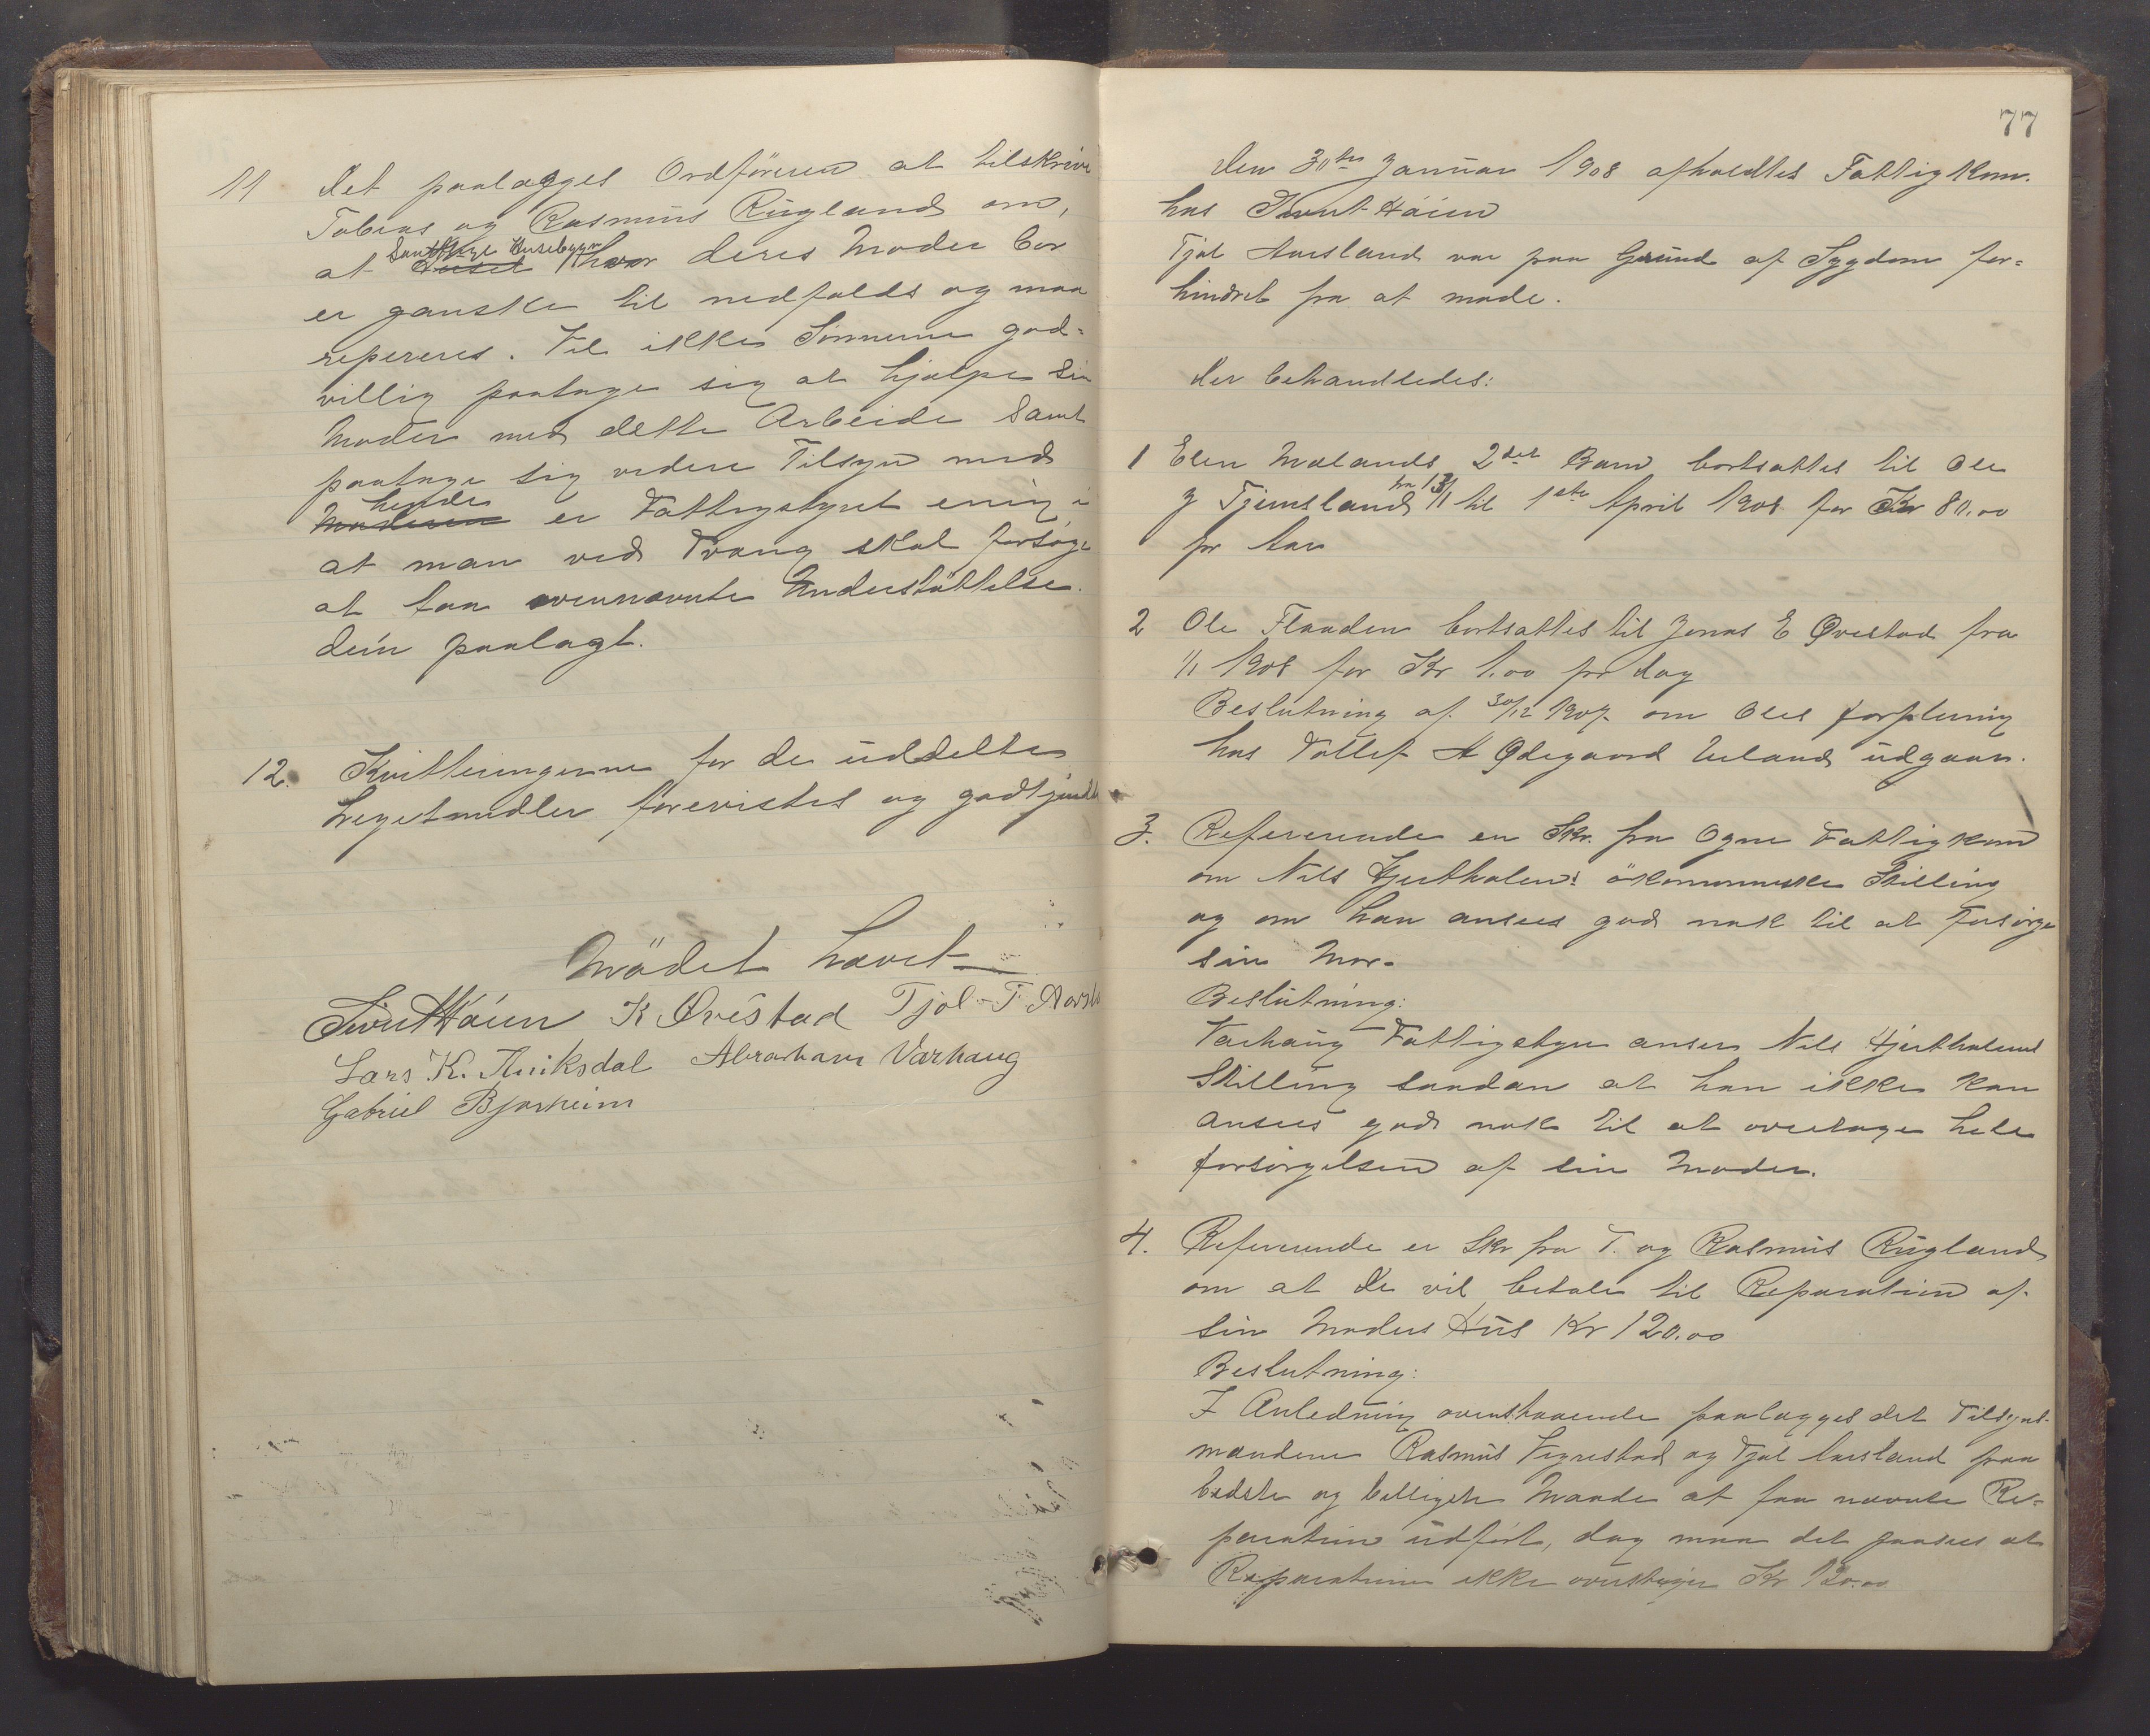 11 Det paalagges Ordföreren at tilskrive
Tobias og Rasmus Rugland om,
at Huset hvor deres Moder bor
er ganske til nedfalds og maa
repereres. Vil ikke Sönnerne god-
villig paatage sig at hjælpe sin
Moder med dette Arbeide samt
paatage sig videre Tilsyn med
hende
Moderen er Fattigstyret enig i
at man ved Tvang skal forsøge
at faa ovennævnte Understöttelse
dem paalagt.
12. Kvitteringerne for de uddelte
Legetmidler forevistes og godkjendt
Mödet hævet
Sivert Höien K Ørestad Tjøl T. Aarsl
Lars K. Auiksdal Abraham Varhaug
Gabriel Bjorheim
77
Den 30te Januar 1908 afholdtes Fattigkom.
hos Sivert Höien
Tjøl Aarsland var paa Grund af Sygdom for-
hindret fra at møde.
Der behandledes:
1 Elen Mælands 2det Barn bortsattes til Ole
J Tjemsland fra 13/1 til 1ste April 1908 for Kr 80.00
pr Aar
2 Ole Flaaden bortsattes til Jonas E Ørestad fra
1/1 1908 for Kr 1.00 pr dag
Beslutning af 30/12 1907 om Oles forpleining
hos Tollef A Ødegaard Ueland udgaar.
3. Refererede en Skr. fra Ogne Fattigkom
om Nils Hjertholens ökonomiske Stilling
og om han ansees god nok til at forsörge
sin Mor.
Beslutning:
Varhaug Fattigstyre anser Nils Hjertholens
Stilling saadan at han ikke kan
ansees god nok til at overtage hele
forsörgelsen af sin Moder.
4. Refererede er Skr fra T. og Rasmus Rugland
om at de vil betale til Reparation af
sin Moders Hus Kr 120.00
Beslutning:
I Anledning ovenstaaende paalagges det Tilsyns-
mændene Rasmus Vigrestad og Tjøl Aarsland paa
bedste og billigste Maade at faa nævnte Re-
paration udfört, dog maa det paasees at
Reparationen ikke overstiger Kr 120.00